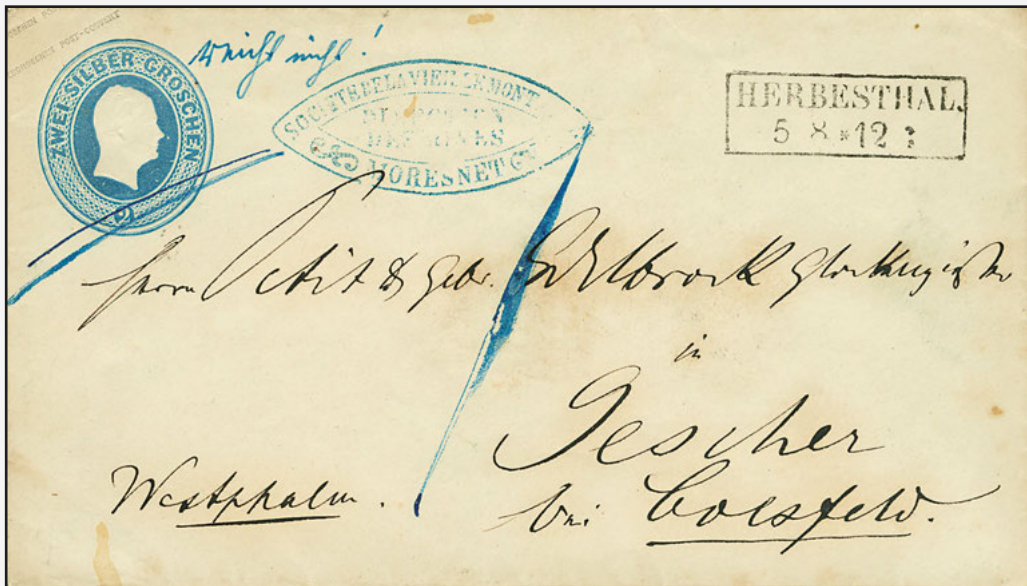 POST-COUVERT
ZWEI SILBER GROSCHEN
2
reicht nicht!
SOCIETE DE LA VIEILLE MONT
DIRECTION
DES MINES
MORESNET
HERBESTHAL.
5 8 * 12
Herrn Petit & Gebr. Edelbrock Glockengießer
in
Gescher
bei Coesfeld.
Westphalen.
1